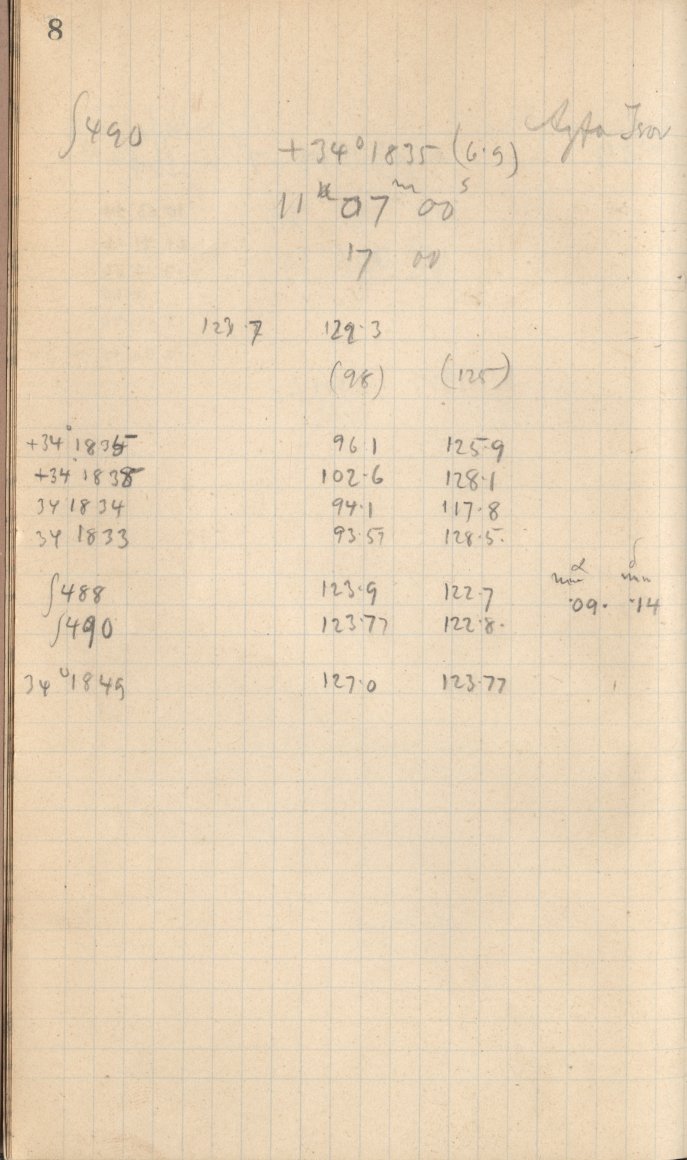 8
∫490
+34°1835 (6.9)
11h 07m 00s
17 00
123.7 129.3
(98) (125)
+34°1835 96.1 125.9
+34°1838 102.6 128.1
34 1834 94.1 117.8
34 1833 93.57 128.5
α δ
∫488 123.9 122.7 .09. .14
∫490 123.77 122.8.
34°1849 127.0 123.77